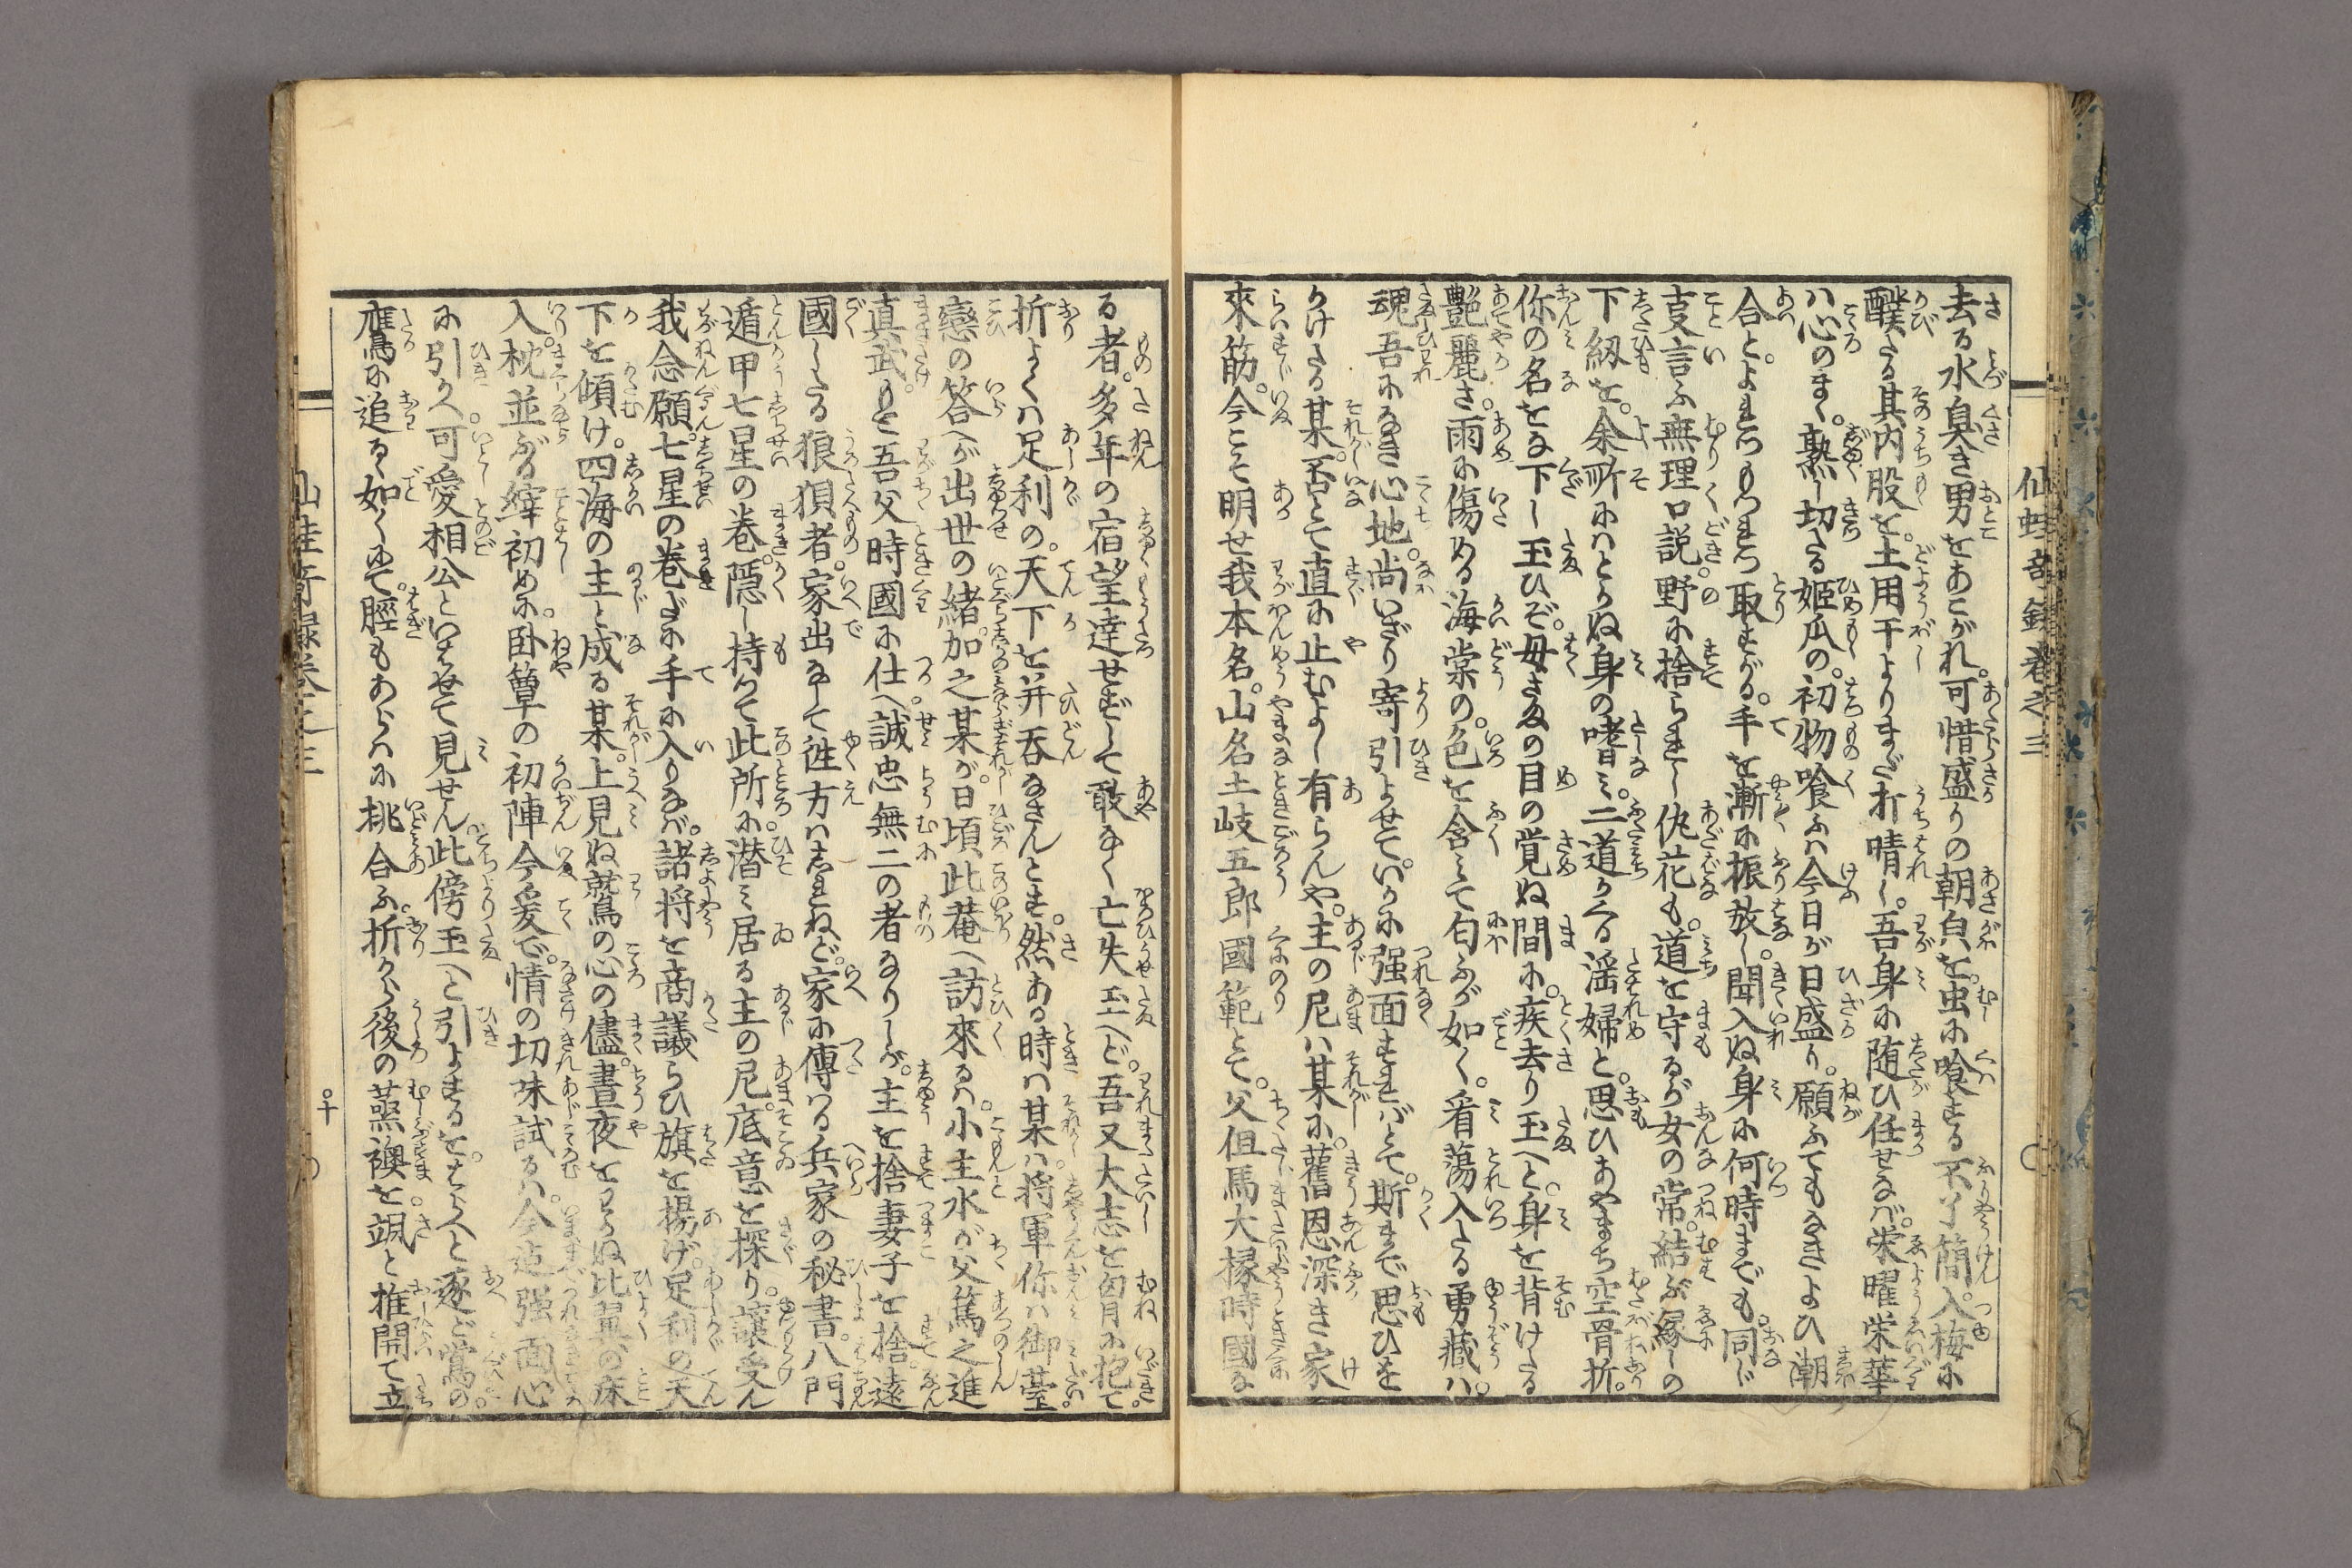 仙蛙奇録卷之三
去る水臭き男をあこがれ。可惜盛りの朝皃を。虫に喰する不了簡。入梅に
醭たる其内股を。土用干よりまだ打晴し。吾身に随ひ任せなば。栄曜栄華
ハ心のまゝ。熟し切たる姫瓜の。初物喰ふハ今日が日盛り。願ふてもなきよひ潮
合と。よれつもつれつ取すがる。手を漸に振放し。聞入ぬ身に何時までも。同じ
叓言ふ無理口説。野に捨られし仇花も。道を守るが女の常。結ぶ縁しの
下紐を。余所にハとかぬ身の嗜ミ。二道かくる淫婦と。思ひあやまち空骨折。
你の名をな下し玉ひぞ。母さまの目の覚ぬ間に。疾去り玉へと。身を背けたる
艶麗さ。雨に傷める海棠の。色を含ミて匂ふが如く。看蕩入たる勇藏ハ。
魂吾になき心地。尚いざり寄引よせて。いかに强面すればとて。斯まで思ひを
かけたる某。否とて直に止むよし有らんや。主の尼ハ某に。舊恩深き家
來筋。今こそ明せ我本名。山名土岐五郎國範とて。父但馬大椽時國な
る者。多年の宿望達せずして敢なく亡失玉へど。吾又大志を匈に抱て。
折よくハ足利の。天下を并呑なさんとす。然ある時ハ某ハ将軍你ハ御臺。
戀の答へが出世の緒。加之某が。日頃此菴へ訪來るハ。小主水が父篤之進
真武。もと吾父時國に仕へ。誠忠無二の者なりしが。主を捨妻子を捨。遠
國したる狼狽者。家出なして徃方ハしれねど。家に傳ハる兵家の秘書。八門
遁甲七星の卷。隠し持て此所に。潜ミ居る主の尼。底意を探り。譲受ん
我念願。七星の卷だに手に入りなば。諸将を商議らひ旗を揚げ。足利の天
下を傾け。四海の主と成る某。上見ぬ鷲の心の儘。晝夜をわかぬ比翼の床
入。枕並ぶる縡初めに。卧簟の初陣今爰で。情の切味試るハ。今迠强面心
に引かへ。可愛相公といはせて見せん。此傍玉へと引よするを。
鷹に追るゝ如くにて。脛もあらハに挑合ふ。折から後の蒸襖を。颯と推開て立
仙蛙奇録卷之三
十